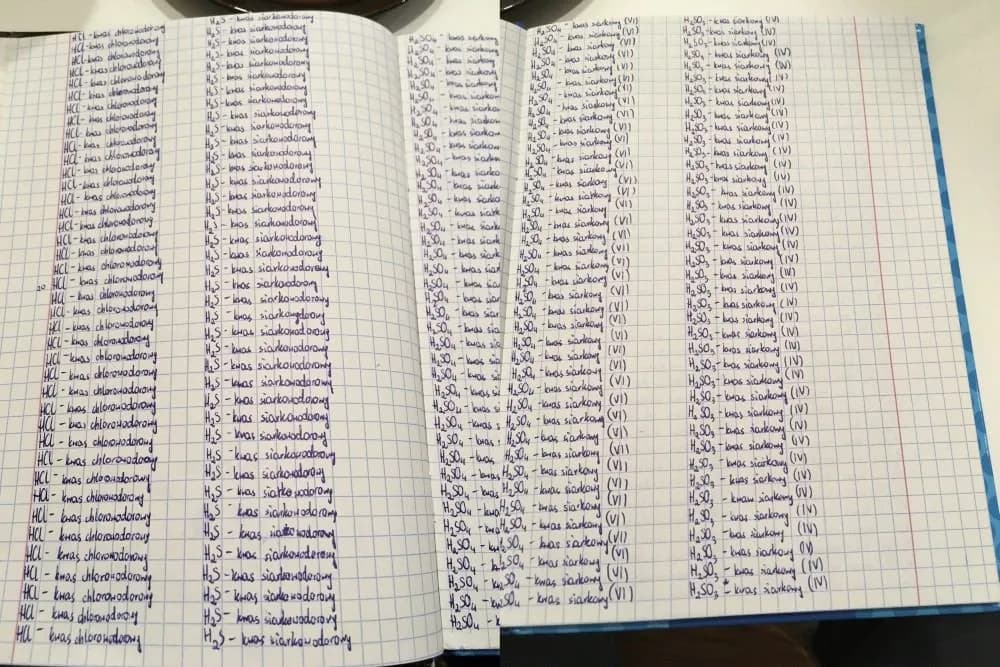 HCl - kwas chlorowodorowy
HCl - kwas chlorowodorowy
HCl - kwas chlorowodorowy
HCl - kwas chlorowodorowy
HCl - kwas chlorowodorowy
HCl - kwas chlorowodorowy
HCl - kwas chlorowodorowy
HCl - kwas chlorowodorowy
HCl - kwas chlorowodorowy
HCl - kwas chlorowodorowy
HCl - kwas chlorowodorowy
HCl - kwas chlorowodorowy
HCl - kwas chlorowodorowy
HCl - kwas chlorowodorowy
HCl - kwas chlorowodorowy
HCl - kwas chlorowodorowy
HCl - kwas chlorowodorowy
HCl - kwas chlorowodorowy
HCl - kwas chlorowodorowy
20 HCl - kwas chlorowodorowy
HCl - kwas chlorowodorowy
HCl - kwas chlorowodorowy
HCl - kwas chlorowodorowy
HCl - kwas chlorowodorowy
HCl - kwas chlorowodorowy
HCl - kwas chlorowodorowy
HCl - kwas chlorowodorowy
HCl - kwas chlorowodorowy
HCl - kwas chlorowodorowy
HCl - kwas chlorowodorowy
HCl - kwas chlorowodorowy
HCl - kwas chlorowodorowy
HCl - kwas chlorowodorowy
HCl - kwas chlorowodorowy
HCl - kwas chlorowodorowy
HCl - kwas chlorowodorowy
HCl - kwas chlorowodorowy
HCl - kwas chlorowodorowy
HCl - kwas chlorowodorowy
HCl - kwas chlorowodorowy
H₂S - kwas siarkowodorowy
H₂S - kwas siarkowodorowy
H₂S - kwas siarkowodorowy
H₂S - kwas siarkowodorowy
H₂S - kwas siarkowodorowy
H₂S - kwas siarkowodorowy
H₂S - kwas siarkowodorowy
H₂S - kwas siarkowodorowy
H₂S - kwas siarkowodorowy
H₂S - kwas siarkowodorowy
H₂S - kwas siarkowodorowy
H₂S - kwas siarkowodorowy
H₂S - kwas siarkowodorowy
H₂S - kwas siarkowodorowy
H₂S - kwas siarkowodorowy
H₂S - kwas siarkowodorowy
H₂S - kwas siarkowodorowy
H₂S - kwas siarkowodorowy
H₂S - kwas siarkowodorowy
H₂S - kwas siarkowodorowy
H₂S - kwas siarkowodorowy
H₂S - kwas siarkowodorowy
H₂S - kwas siarkowodorowy
H₂S - kwas siarkowodorowy
H₂S - kwas siarkowodorowy
H₂S - kwas siarkowodorowy
H₂S - kwas siarkowodorowy
H₂S - kwas siarkowodorowy
H₂S - kwas siarkowodorowy
H₂S - kwas siarkowodorowy
H₂S - kwas siarkowodorowy
H₂S - kwas siarkowodorowy
H₂S - kwas siarkowodorowy
H₂S - kwas siarkowodorowy
H₂S - kwas siarkowodorowy
H₂S - kwas siarkowodorowy
H₂S - kwas siarkowodorowy
H₂S - kwas siarkowodorowy
H₂S - kwas siarkowodorowy
H₂S - kwas siarkowodorowy
H₂SO₄ - kwas
H₂SO₄ - kwas
H₂SO₄ - kwas
H₂SO₄ - kwas
H₂SO₄ - kwas
H₂SO₄ - kwas
H₂SO₄ - kwas
H₂SO₄ - kwas
H₂SO₄ - kwas
H₂SO₄ - kwas
H₂SO₄ - kwas
H₂SO₄ - kwas
H₂SO₄ - kwas
H₂SO₄ - kwas
H₂SO₄ - kwas
H₂SO₄ - kwas
H₂SO₄ - kwas
H₂SO₄ - kwas
H₂SO₄ - kwas
H₂SO₄ - kwas
H₂SO₄ - kwas
H₂SO₄ - kwas
H₂SO₄ - kwas
H₂SO₄ - kwas
H₂SO₄ - kwas
H₂SO₄ - kwas
H₂SO₄ - kwas
H₂SO₄ - kwas
H₂SO₄ - kwas
H₂SO₄ - kwas
H₂SO₄ - kwas
H₂SO₄ - kwas
H₂SO₄ -
H₂SO₄ -
H₂SO₄ -
H₂SO₄ -
H₂SO₄ -
H₂SO₄ -
H₂SO₄ - kwas siarkowy (VI)
H₂SO₄ - kwas siarkowy (VI)
H₂SO₄ - kwas siarkowy (VI)
H₂SO₄ - kwas siarkowy (VI)
H₂SO₄ - kwas siarkowy (VI)
H₂SO₄ - kwas siarkowy (VI)
H₂SO₄ - kwas siarkowy (VI)
H₂SO₄ - kwas siarkowy (VI)
H₂SO₄ - kwas siarkowy (VI)
H₂SO₄ - kwas siarkowy (VI)
H₂SO₄ - kwas siarkowy (VI)
H₂SO₄ - kwas siarkowy (VI)
H₂SO₄ - kwas siarkowy (VI)
H₂SO₄ - kwas siarkowy (VI)
H₂SO₄ - kwas siarkowy (VI)
H₂SO₄ - kwas siarkowy (VI)
H₂SO₄ - kwas siarkowy (VI)
H₂SO₄ - kwas siarkowy (VI)
H₂SO₄ - kwas siarkowy (VI)
H₂SO₄ - kwas siarkowy (VI)
H₂SO₄ - kwas siarkowy (VI)
H₂SO₄ - kwas siarkowy (VI)
H₂SO₄ - kwas siarkowy (VI)
H₂SO₄ - kwas siarkowy (VI)
H₂SO₄ - kwas siarkowy (VI)
H₂SO₄ - kwas siarkowy (VI)
H₂SO₄ - kwas siarkowy (VI)
H₂SO₄ - kwas siarkowy (VI)
H₂SO₄ - kwas siarkowy (VI)
H₂SO₄ - kwas siarkowy (VI)
H₂SO₄ - kwas siarkowy (VI)
H₂SO₄ - kwas siarkowy (VI)
H₂SO₄ - kwas siarkowy (VI)
H₂SO₄ - kwas siarkowy (VI)
H₂SO₄ - kwas siarkowy (VI)
H₂SO₄ - kwas siarkowy (VI)
SO₄ - kwas siarkowy (VI)
SO₄ - kwas siarkowy (VI)
H₂SO₃ - kwas siarkowy (IV)
H₂SO₃ - kwas siarkowy (IV)
H₂SO₃ - kwas siarkowy (IV)
H₂SO₃ - kwas siarkowy (IV)
H₂SO₃ - kwas siarkowy (IV)
H₂SO₃ - kwas siarkowy (IV)
H₂SO₃ - kwas siarkowy (IV)
H₂SO₃ - kwas siarkowy (IV)
H₂SO₃ - kwas siarkowy (IV)
H₂SO₃ - kwas siarkowy (IV)
H₂SO₃ - kwas siarkowy (IV)
H₂SO₃ - kwas siarkowy (IV)
H₂SO₃ - kwas siarkowy (IV)
H₂SO₃ - kwas siarkowy (IV)
H₂SO₃ - kwas siarkowy (IV)
H₂SO₃ - kwas siarkowy (IV)
H₂SO₃ - kwas siarkowy (IV)
H₂SO₃ - kwas siarkowy (IV)
H₂SO₃ - kwas siarkowy (IV)
H₂SO₃ - kwas siarkowy (IV)
H₂SO₃ - kwas siarkowy (IV)
H₂SO₃ - kwas siarkowy (IV)
H₂SO₃ - kwas siarkowy (IV)
H₂SO₃ - kwas siarkowy (IV)
H₂SO₃ - kwas siarkowy (IV)
H₂SO₃ - kwas siarkowy (IV)
H₂SO₃ - kwas siarkowy (IV)
H₂SO₃ - kwas siarkowy (IV)
H₂SO₃ - kwas siarkowy (IV)
H₂SO₃ - kwas siarkowy (IV)
H₂SO₃ - kwas siarkowy (IV)
H₂SO₃ - kwas siarkowy (IV)
H₂SO₃ - kwas siarkowy (IV)
H₂SO₃ - kwas siarkowy (IV)
H₂SO₃ - kwas siarkowy (IV)
H₂SO₃ - kwas siarkowy (IV)
H₂SO₃ - kwas siarkowy (IV)
H₂SO₃ - kwas siarkowy (IV)
H₂SO₃ - kwas siarkowy (IV)
H₂SO₃ - kwas siarkowy (IV)